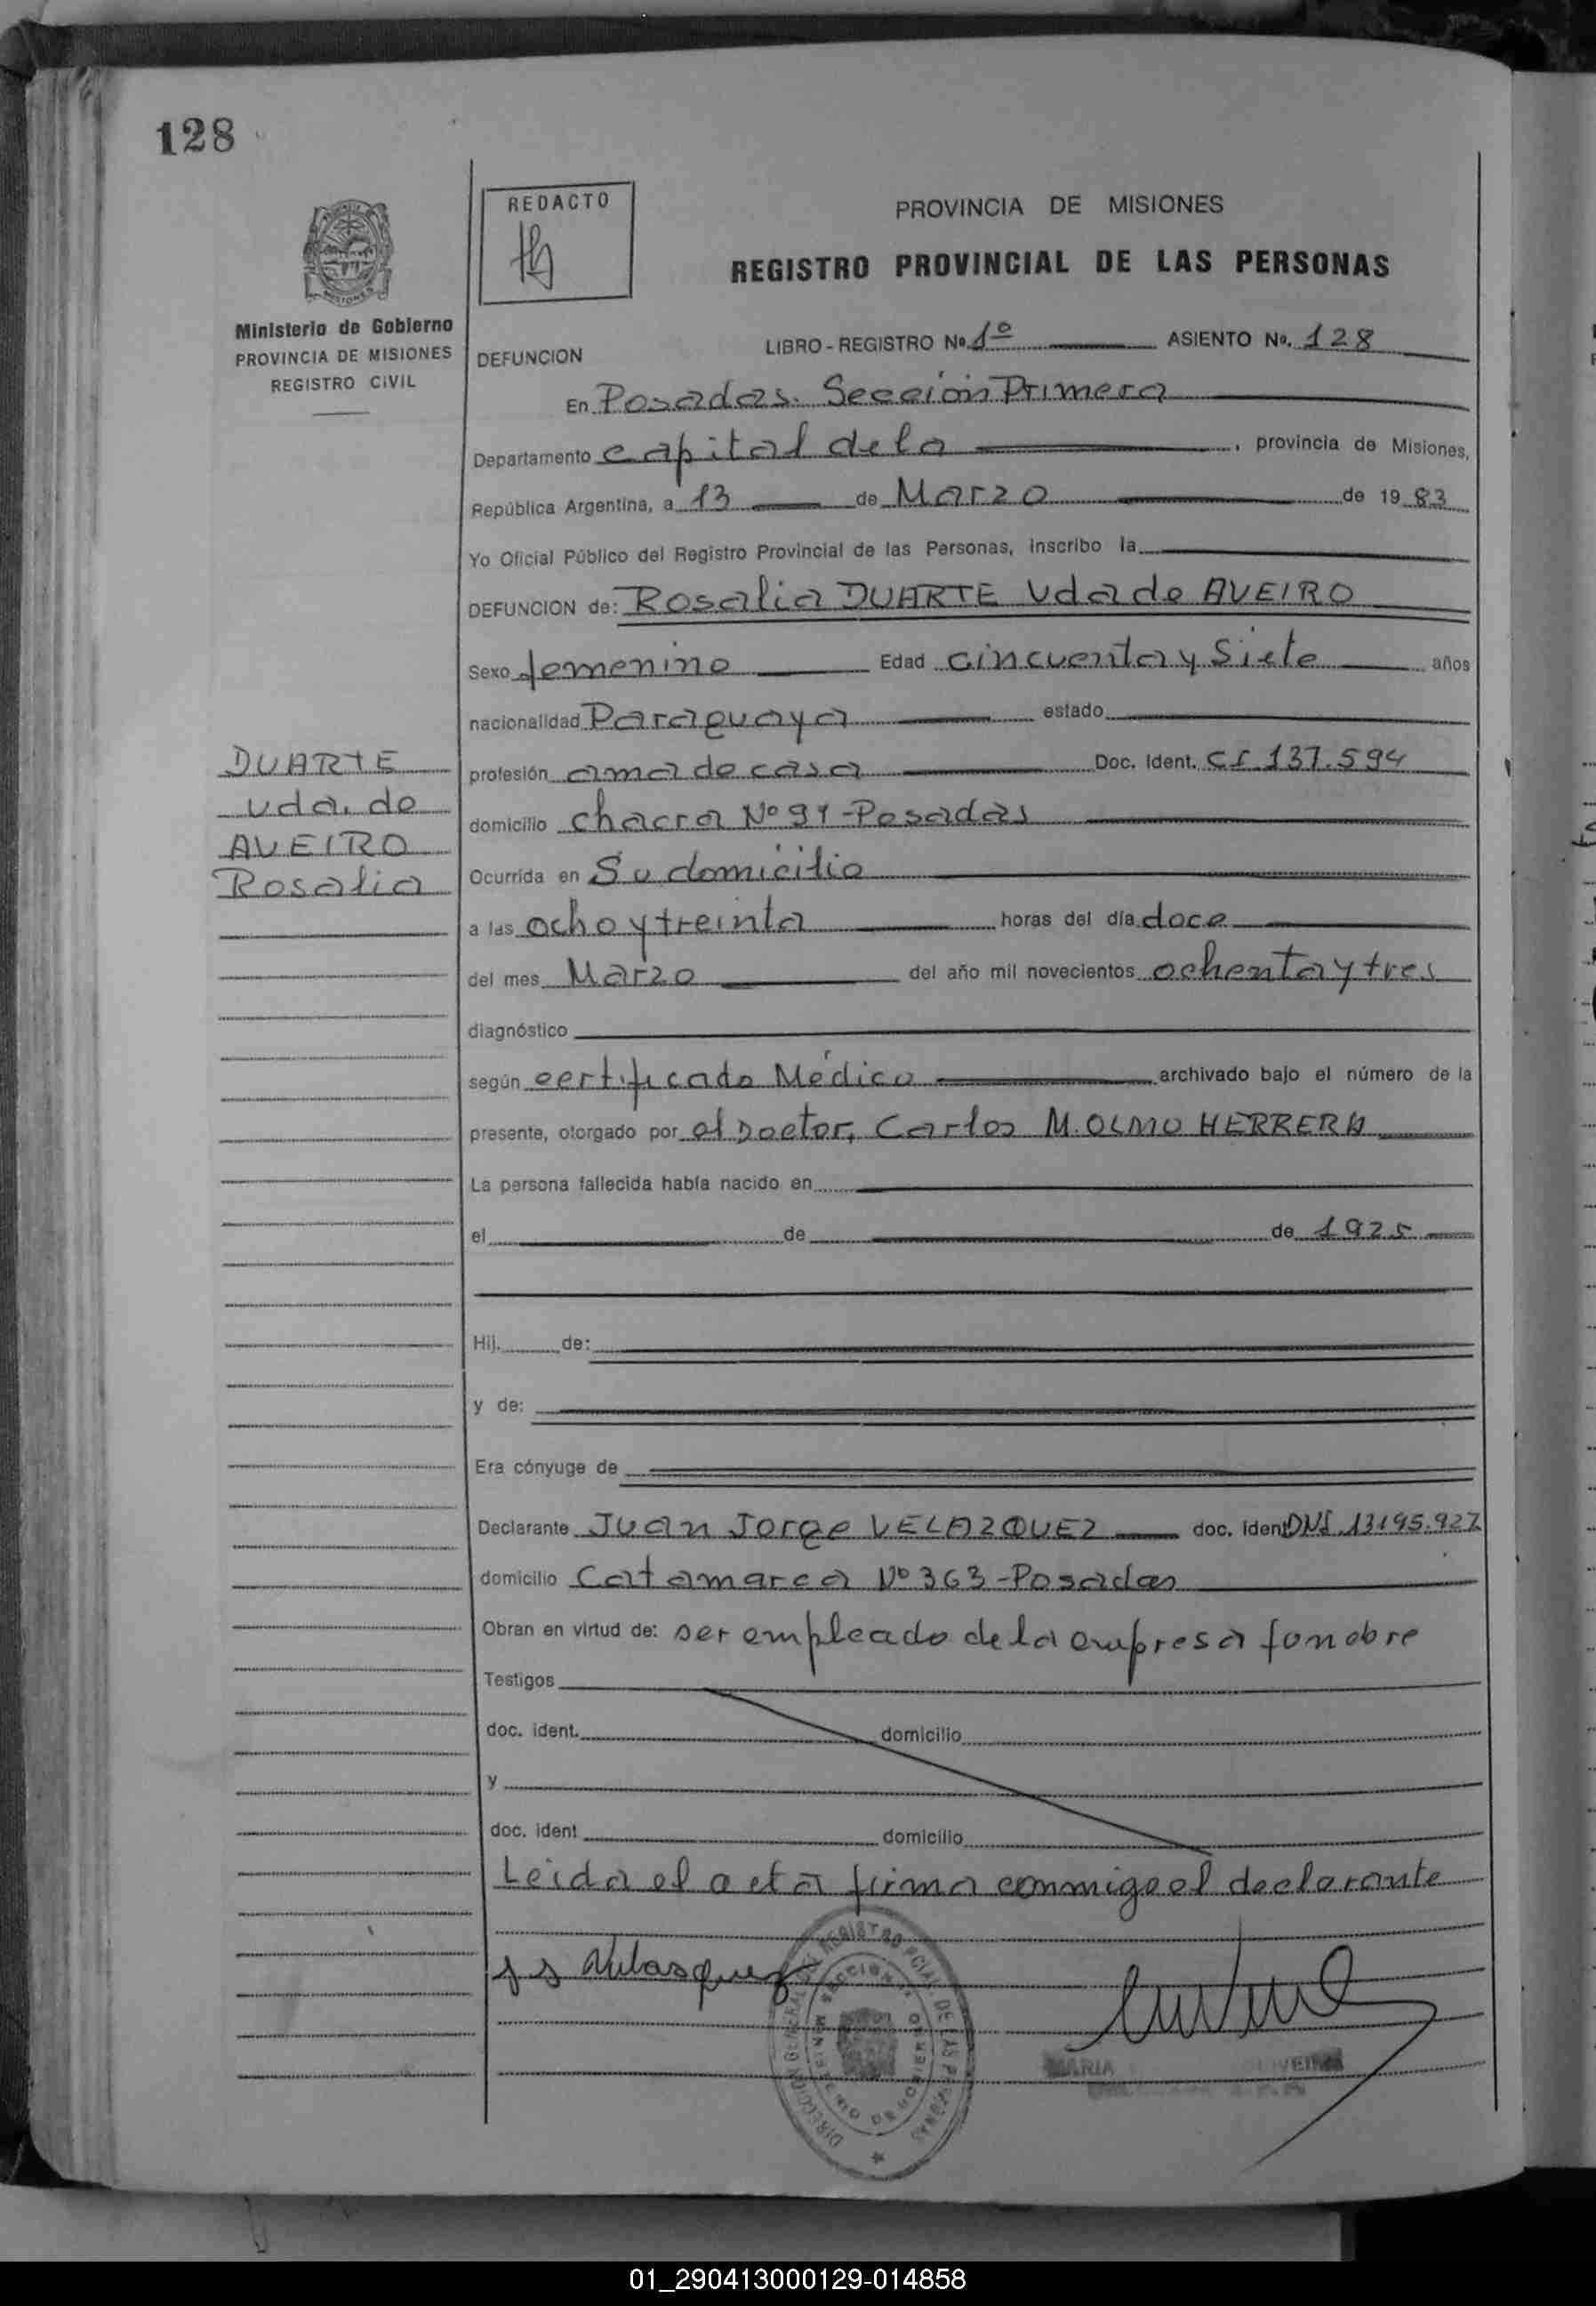 128
REDACTO
PROVINCIA DE MISIONES
REGISTRO PROVINCIAL DE LAS PERSONAS
MISIONES
Ministerio de Gobierno
PROVINCIA DE MISIONES
REGISTRO CIVIL
DEFUNCION LIBRO - REGISTRO No. 1º ASIENTO No. 128
En Posadas. Sección Primera
Departamento capital de la , provincia de Misiones,
República Argentina, a 13 de Marzo de 1983
Yo Oficial Público del Registro Provincial de las Personas, inscribo la
DEFUNCION de: Rosalia DUARTE Vda de AVEIRO
Sexo femenino Edad cincuenta y Siete años
nacionalidad Paraguaya estado
DUARTE
Vda. de
AVEIRO
Rosalia
profesión ama de casa Doc. Ident. C.I. 137.594
domicilio chacra Nº 91 - Posadas
Ocurrida en Su domicilio
a las ocho y treinta horas del día doce
del mes Marzo del año mil novecientos ochenta y tres
diagnóstico
según certificado Médico archivado bajo el número de la
presente, otorgado por el Doctor, Carlos M. OLMO HERRERA
La persona fallecida había nacido en
el de de 1925
Hij. de:
y de:
Era cónyuge de
Declarante Juan Jorge VELAZQUEZ doc. ident DNI. 13195.927
domicilio Catamarca Nº 363 - Posadas
Obran en virtud de: ser empleado de la empresa funebre
Testigos
doc. ident. domicilio
y
doc. ident domicilio
Leida el acta firma conmigo el declarante
DIRECCION GENERAL DEL REGISTRO PCIAL. DE LAS PERSONAS
SECCION 1ª
MINISTERIO DE GOBIERNO
MARIA
01_290413000129-014858